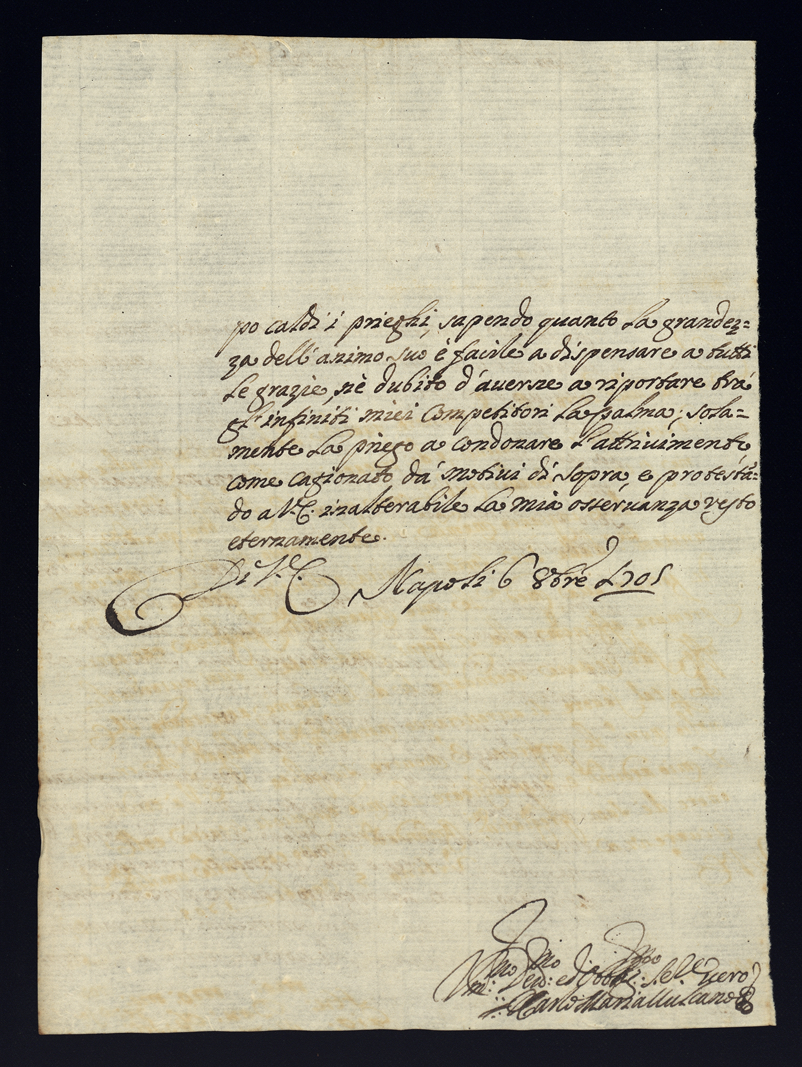 po caldi i prieghi, sapendo quanto la grandez=
za dell'animo suo è facile a dispensare a tutti
le grazie, nè dubito d'averne a riportare trà
gl'infiniti miei Competitori la palma; sola=
mente la priego a condonare l'attrivimento
come cagionato da' motivi di sopra, e protestã=
do a V. E. inalterabile la mia osservanza resto
eternamente.
Di V. E. Napoli 6 8bre 1701
Um:mo Dev:mo ed Obb: Se: Vero
Carlo Maria